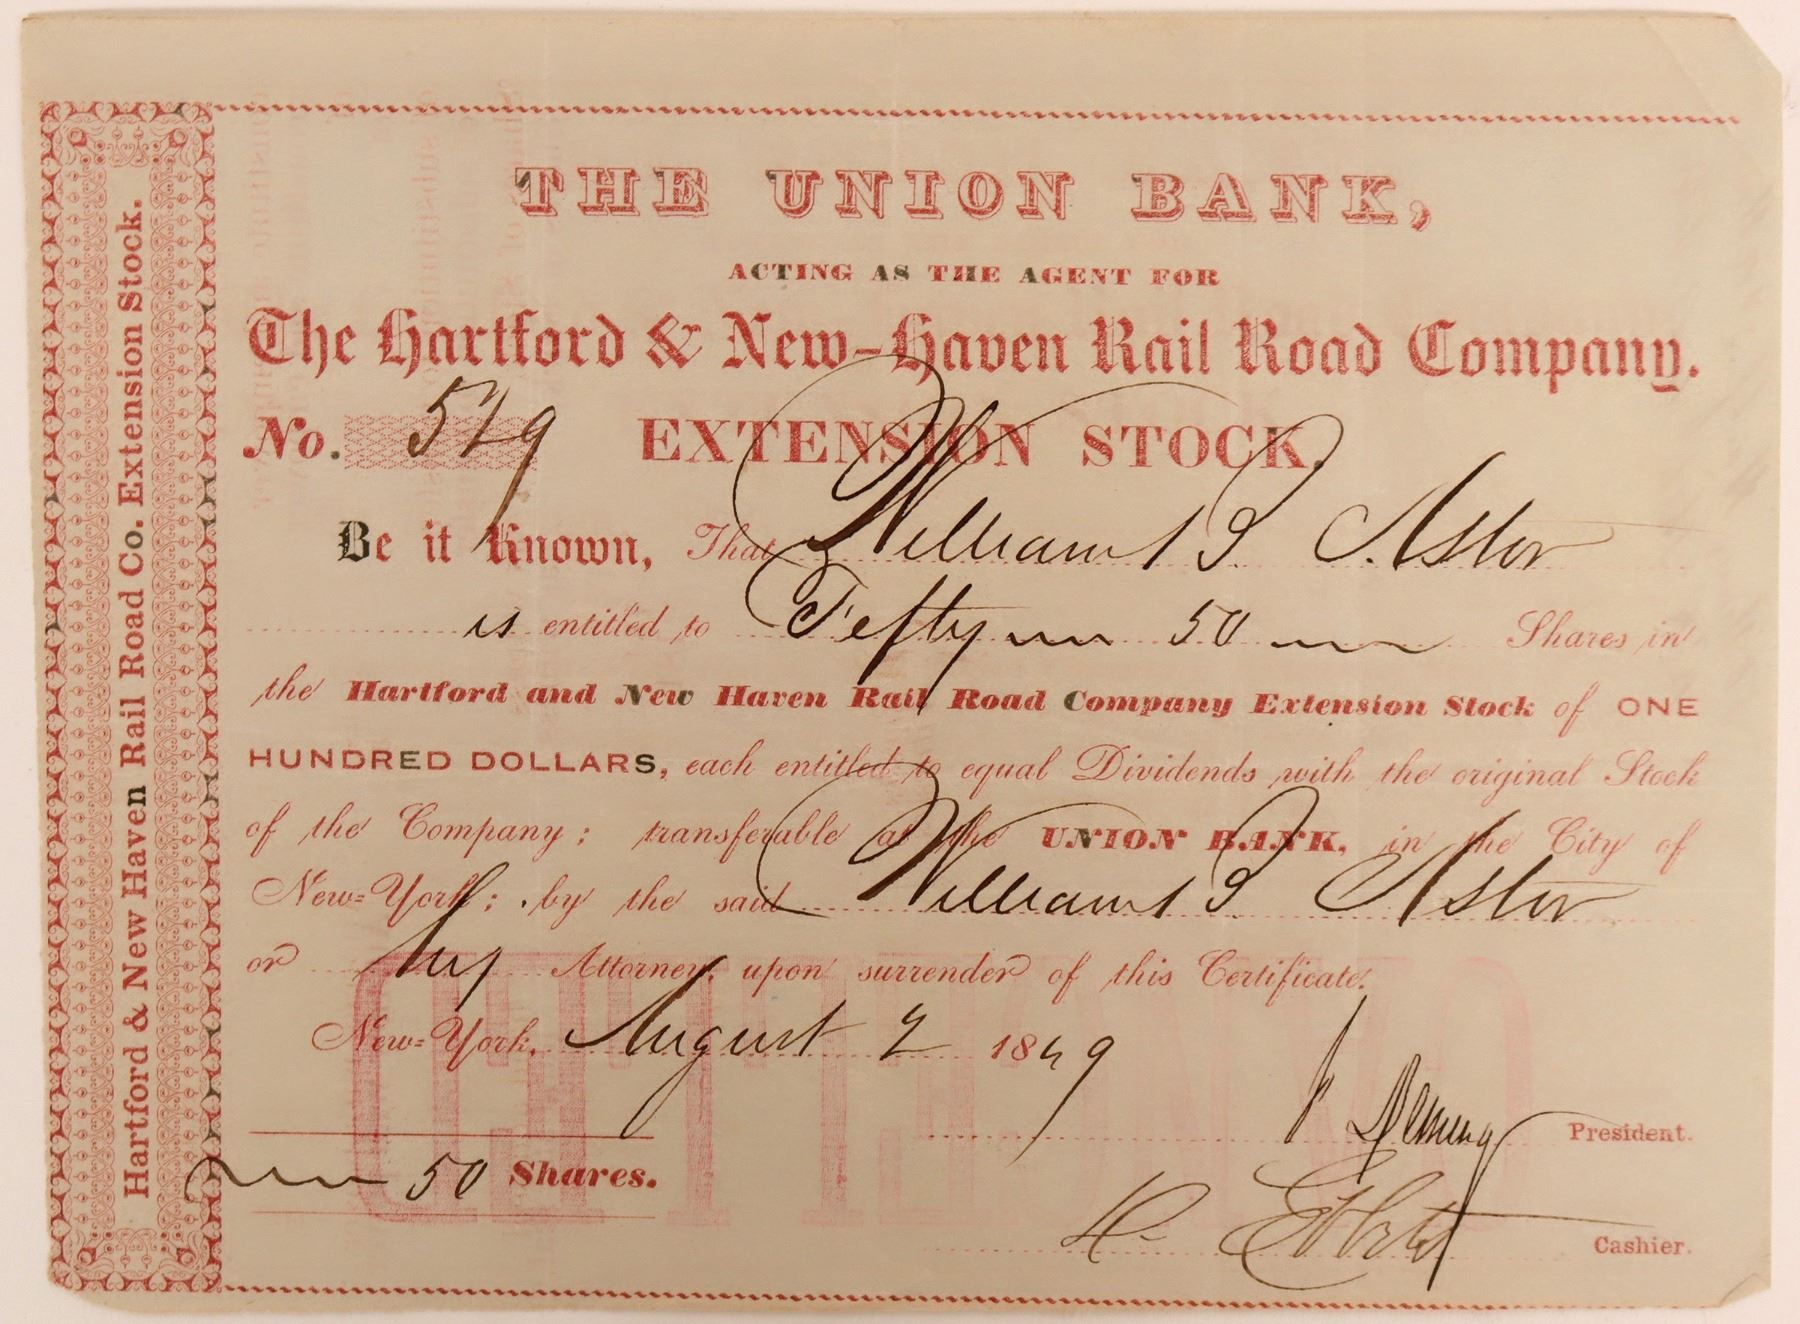 THE UNION BANK,
ACTING AS THE AGENT FOR
The Hartford & New-Haven Rail Road Company.
No. 529 EXTENSION STOCK.
Be it Known, That William B. Astor
is entitled to Fifty 50 Shares in
the Hartford and New Haven Rail Road Company Extension Stock of ONE
HUNDRED DOLLARS, each entitled to equal Dividends with the original Stock
of the Company; transferable at the UNION BANK, in the City of
New=York; by the said William B. Astor
or his Attorney, upon surrender of this Certificate.
New=York, August 2 1849
President.
50 Shares.
Cashier.
Hartford & New Haven Rail Road Co. Extension Stock.